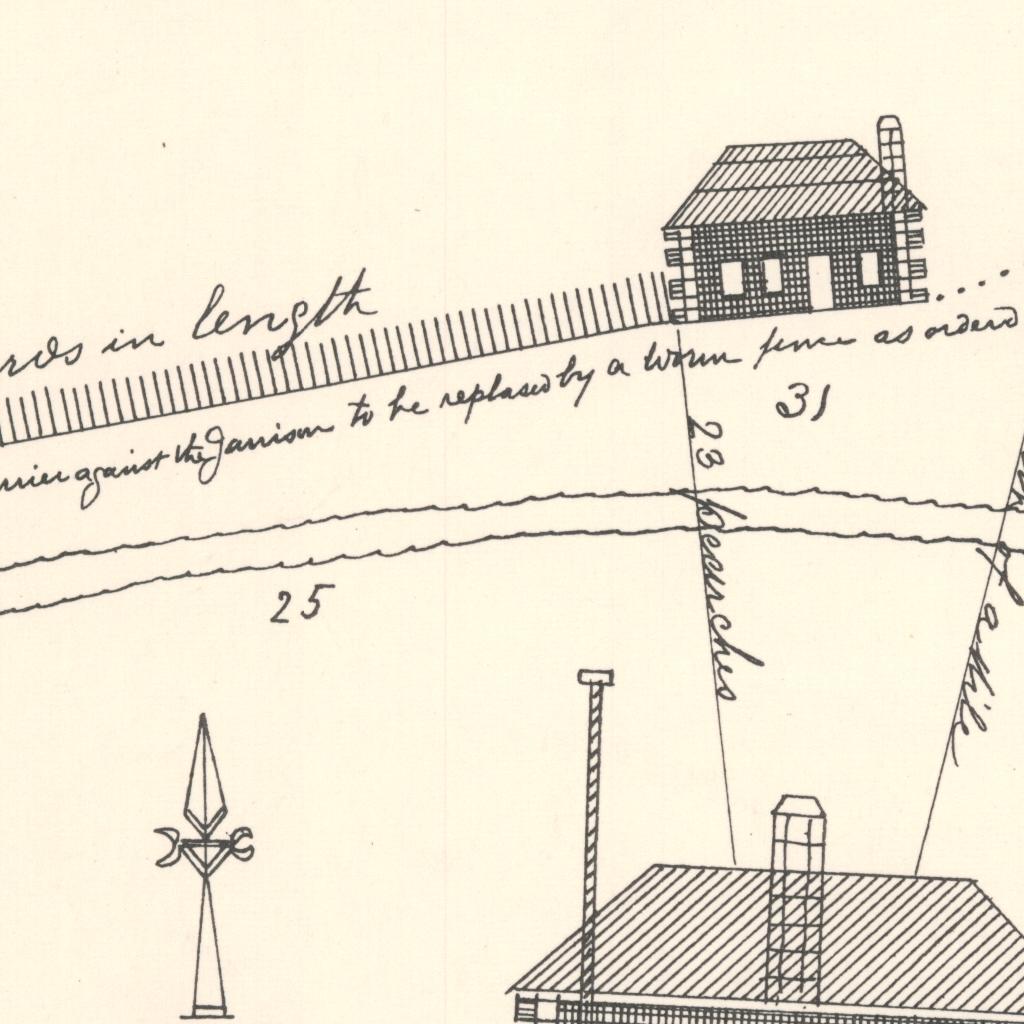 in length
against the Garrison to be replased by a worm fence as orderd
31
23 peeurches
25
a Mile